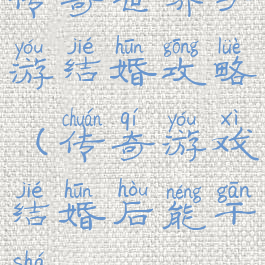 传奇世界手
yóu jié hūn gōng lüè
游结婚攻略
chuán qí yóu xì
（传奇游戏
jié hūn hòu néng gān
结婚后能干
shá